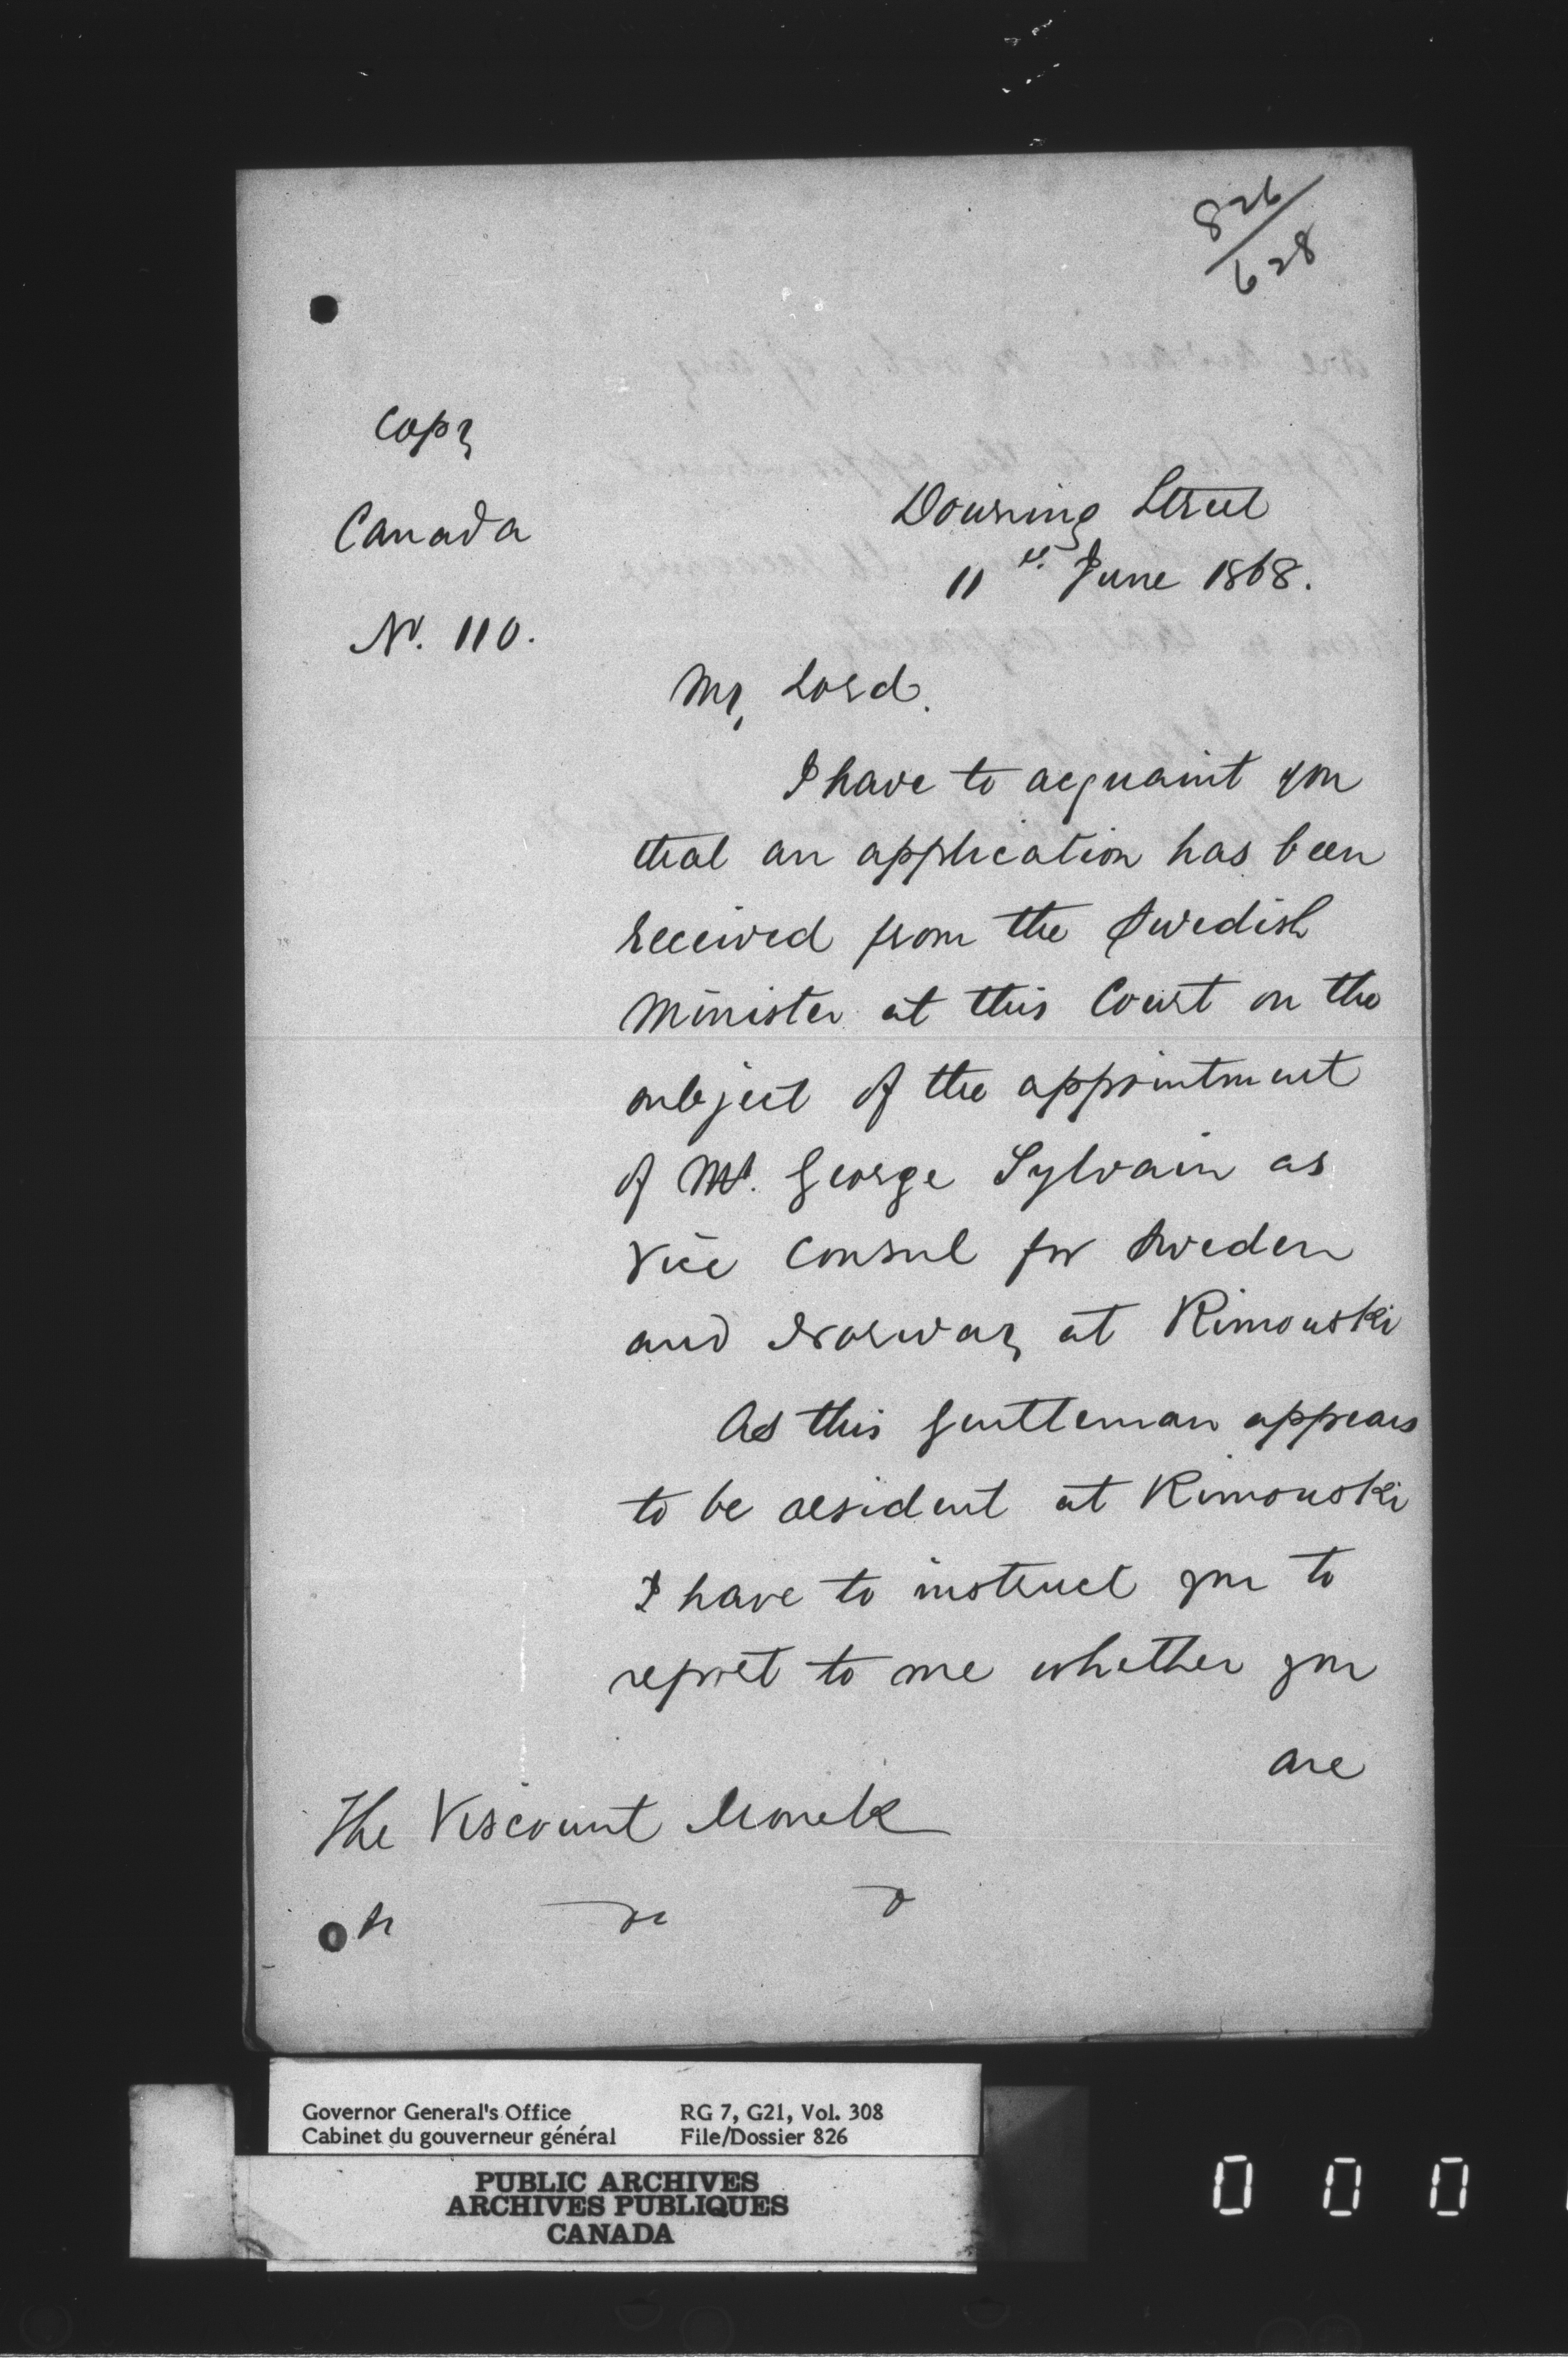 826/628
Copy
Canada
No. 110.
Downing Street
11th June 1868.
My Lord.
I have to acquaint you
that an application has been
received from the Swedish
Minister at this Court on the
subject of the appointment
of Mr. George Sylvain as
Vice Consul for Sweden
and Norway at Rimouski
As this gentleman appears
to be resident at Rimouski
I have to instruct you to
report to me whether you
are
The Viscount Monck
Governor General's Office RG 7, G21, Vol. 308
Cabinet du gouverneur général File/Dossier 826
PUBLIC ARCHIVES
ARCHIVES PUBLIQUES
CANADA
0 0 0